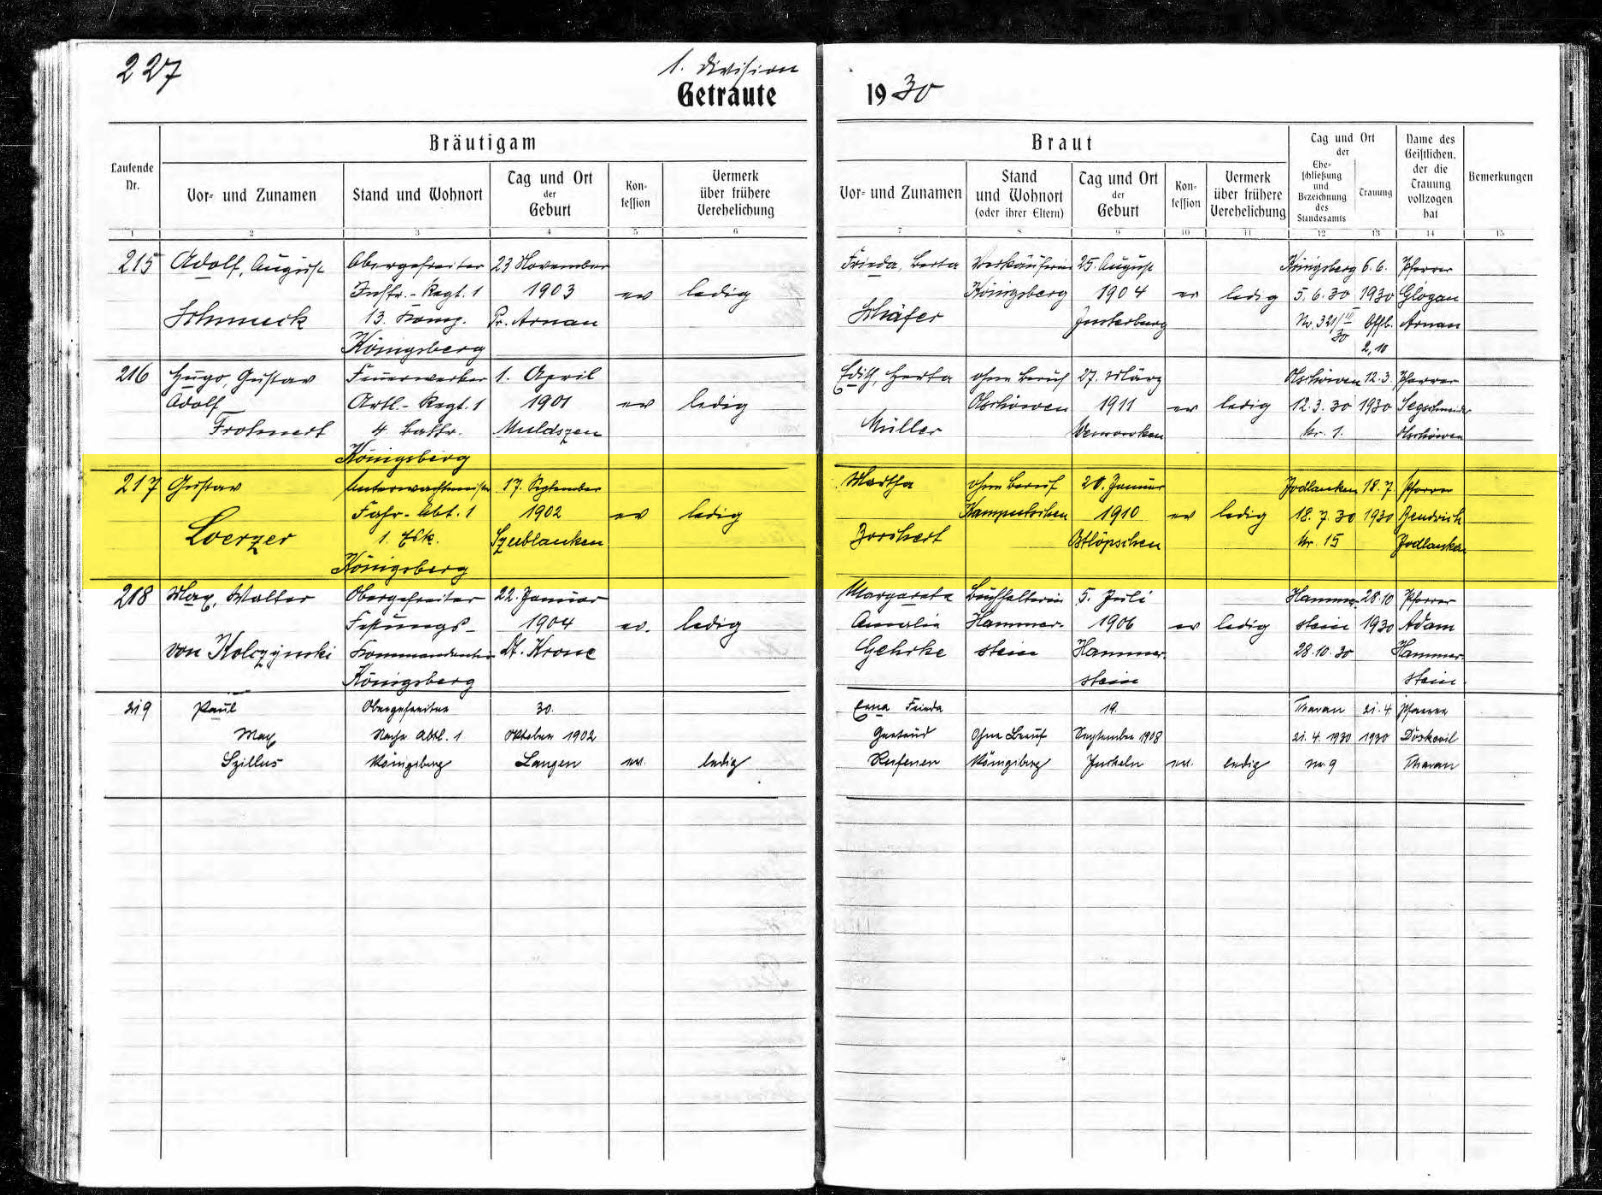 227
1. Division
Getraute
1930
Bräutigam
Braut
Laufende Nr.
Vor- und Zunamen
Stand und Wohnort
Tag und Ort der Geburt
Kon-fession
Vermerk über frühere Verehelichung
Vor- und Zunamen
Stand und Wohnort (oder ihrer Eltern)
Tag und Ort der Geburt
Kon-fession
Vermerk über frühere Verehelichung
Tag und Ort der
Ehe-schließung und Bezeichnung des Standesamts
Trauung
Name des Geistlichen, der die Trauung vollzogen hat
Bemerkungen
1 2 3 4 5 6 7 8 9 10 11 12 13 14 15
215 Adolf, August Obergefreiter 23 November Frieda, Berta Verkäuferin 25. August Königsberg 6.6. Pfarrer
Inftr.-Regt. 1 1903 ev ledig Königsberg 1904 ev ledig 5.6.30 1930 Glogau
Schmuck 13. Komp. Pr. Arnau Schäfer Insterburg Nr. 321 Arnau
Königsberg 2,10
216 Hugo, Gustav Feuerwerker 1. April Edith, Herta ohne Beruf 27. März Olschöwen 12.3. Pfarrer
Adolf Artl.-Regt. 1 1901 ev ledig Olschöwen 1911 ev ledig 12.3.30 1930
Frohnert 4 Battr. Muldszen Müller Nr. 1. Olschöwen
Königsberg
217 Gustav Unterwachtmeister 17. September Martha ohne Beruf 20. Januar Jodlauken 18.7 Pfarrer
Fahr-Abt. 1 1902 ev ledig 1910 ev ledig 18.7.30 1930
Loerzer 1. Esk. Szublauken Borchert Nr. 15 Jodlauken
Königsberg
218 Max, Walter Obergefreiter 22. Januar Margarete Buchhalterin 5. Juli Hammer- 28.10 Pfarrer
Festungs- 1904 ev. ledig Amalie Hammer- 1906 ev ledig stein 1930 Adam
von Kolczynski Kommandantur Dt. Krone Gehrke stein Hammer- 28.10.30 Hammer-
Königsberg stein stein.
219 Paul Obergefreiter 30. Erna Frieda 19. Tharau 21.4. Pfarrer
Max Nachr. Abtl. 1 Oktober 1902 Gertrud Ohne Beruf September 1908 21.4.1930 1930
Szillus Königsberg Langen ev. ledig Königsberg ev. ledig Nr. 9 Tharau